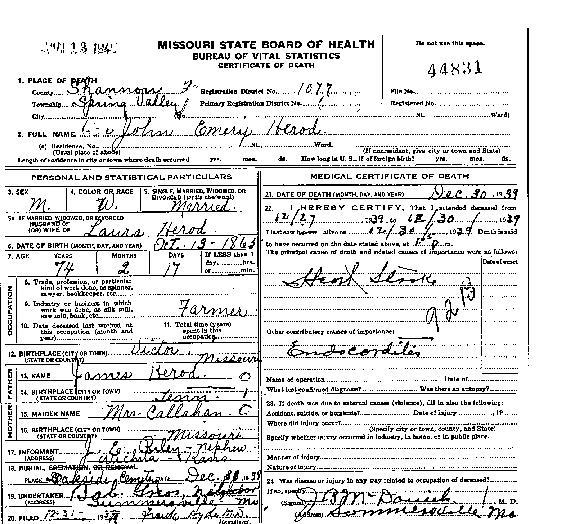 MISSOURI STATE BOARD OF HEALTH
BUREAU OF VITAL STATISTICS
CERTIFICATE OF DEATH
Do not use this space.
44831
1. PLACE OF DEATH
County Shannon Registration District No. 1077 File No.
Township Spring Valley Primary Registration District No. Registered No.
City No. St. Ward)
2. FULL NAME John Emery Herod
(a) Residence, No. St. Ward.
(Usual place of abode) (If nonresident, give city or town and State)
Length of residence in city or town where death occurred yrs. mos. ds. How long in U. S., if of foreign birth? yrs. mos. ds.
PERSONAL AND STATISTICAL PARTICULARS
3. SEX 4. COLOR OR RACE 5. SINGLE, MARRIED, WIDOWED, OR DIVORCED (write the word)
M. W. Married
5A. IF MARRIED, WIDOWED, OR DIVORCED
HUSBAND OF
(OR) WIFE OF Laura Herod
6. DATE OF BIRTH (MONTH, DAY, AND YEAR) Oct. 13-1865
7. AGE YEARS MONTHS DAYS IF LESS than 1
day, hrs.
74 2 17 or min.
OCCUPATION
8. Trade, profession, or particular
kind of work done, as spinner,
sawyer, bookkeeper, etc.
9. Industry or business in which
work was done, as silk mill,
saw mill, bank, etc. Farmer
10. Date deceased last worked at
this occupation (month and
year)
11. Total time (years)
spent in this
occupation
12. BIRTHPLACE (CITY OR TOWN)
(STATE OR COUNTRY) Missouri
FATHER
13. NAME James Herod
14. BIRTHPLACE (CITY OR TOWN)
(STATE OR COUNTRY) Tenn
MOTHER
15. MAIDEN NAME Mrs. Callahan
16. BIRTHPLACE (CITY OR TOWN)
(STATE OR COUNTRY) Missouri
17. INFORMANT nephew
18. BURIAL, CREMATION, OR REMOVAL
PLACE Oakside Cemetery DATE Dec. 39
19. UNDERTAKER neighbor
Summersville Mo
20. FILED 12-31-
MEDICAL CERTIFICATE OF DEATH
21. DATE OF DEATH (MONTH, DAY, AND YEAR) Dec. 30 1939
22. I HEREBY CERTIFY, That I attended deceased from
12/27 1939, to 12/30/ 1939
I last saw alive on 12/30/ 1939 Death is said
to have occurred on the date stated above, at P. m.
The principal cause of death and related causes of importance were as follows:
Date of onset
92B
Other contributory causes of importance:
Endocarditis
Name of operation Date of
What test confirmed diagnosis? Was there an autopsy?
23. If death was due to external causes (violence), fill in also the following:
Accident, suicide, or homicide? Date of injury 19
Where did injury occur?
(Specify city or town, county, and State)
Specify whether injury occurred in industry, in home, or in public place.
Manner of injury
Nature of injury
24. Was disease or injury in any way related to occupation of deceased?
If so, specify
(Signed) M. D.
(Address) Summersville Mo